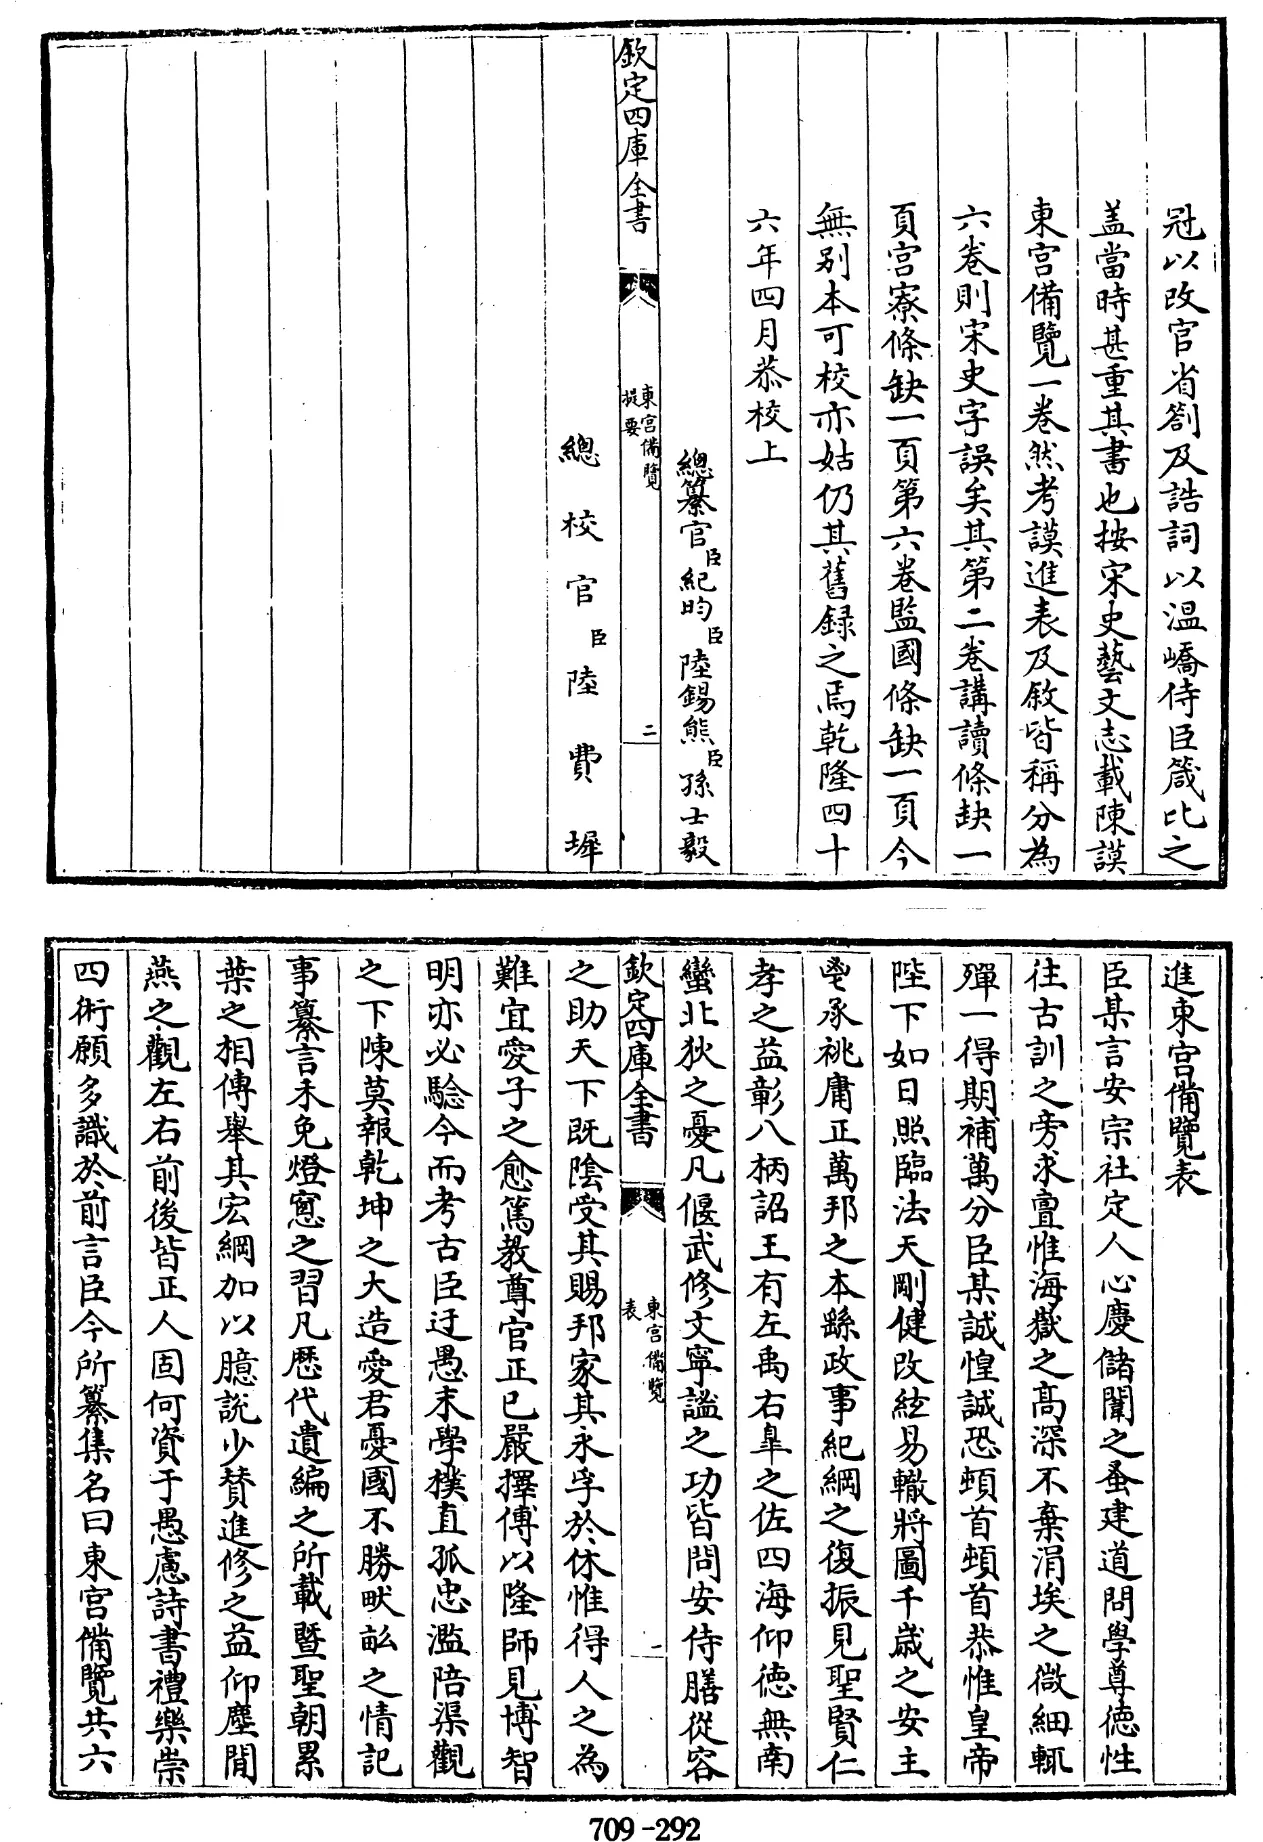 冠以改官省劄及誥詞以温嶠侍臣箴比之
盖當時甚重其書也按宋史藝文志載陳謨
東宮備覽一卷然考謨進表及敘皆稱分為
六卷則宋史字誤矣其第二卷講讀條缺一
頁宮寮條缺一頁第六卷監國條缺一頁今
無别本可校亦姑仍其舊録之焉乾隆四十
六年四月恭校上
總纂官臣紀昀臣陸錫熊臣孫士毅
欽定四庫全書
東宮備覽
提要
二
總校官臣陸費墀
進東宮備覽表
臣某言安宗社定人心慶儲闈之蚤建道問學尊德性
往古訓之旁求亶惟海嶽之高深不棄涓埃之微細輒
殫一得期補萬分臣某誠惶誠恐頓首頓首恭惟皇帝
陛下如日照臨法天剛健改絃易轍將圖千歳之安主
鬯承祧庸正萬邦之本繇政事紀綱之復振見聖賢仁
孝之益彰八柄詔王有左禹右臯之佐四海仰德無南
蠻北狄之憂凡偃武修文寧謐之功皆問安侍膳從容
欽定四庫全書
東宮備覽
表
一
之助天下既陰受其賜邦家其永孚於休惟得人之為
難宜愛子之愈篤教尊官正已嚴擇傅以隆師見博智
明亦必驗今而考古臣迂愚末學樸直孤忠濫陪渠觀
之下陳莫報乾坤之大造愛君憂國不勝畎畝之情記
事纂言未免燈窓之習凡歴代遺編之所載暨聖朝累
葉之相傳舉其宏綱加以臆説少賛進修之益仰塵閒
燕之觀左右前後皆正人固何資于愚慮詩書禮樂崇
四術願多識於前言臣今所纂集名曰東宮備覽共六
709-292